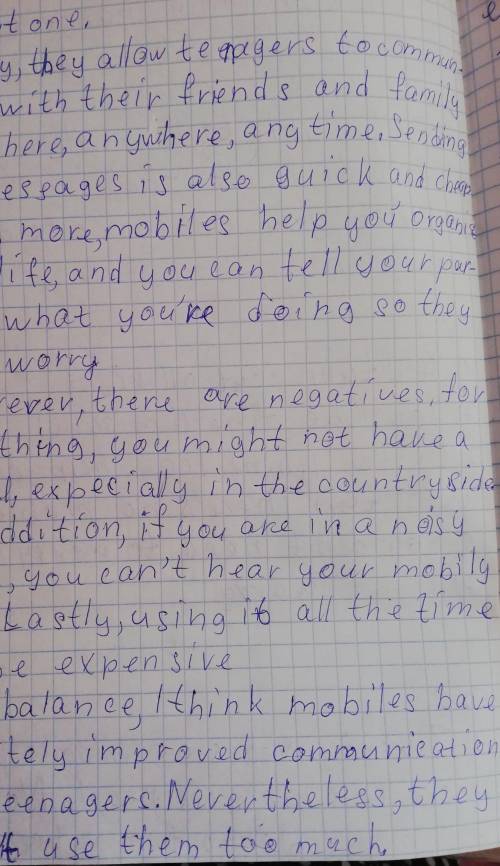 t one.
y, they allow teenagers to commun-
with their friends and family
here, anywhere, any time. Sending
essages is also quick and cheap
more, mobiles help you organis
life, and you can tell your par-
what you're doing so they
worry
ever, there are negatives, for
thing, you might not have a
l, expecially in the countryside
ddition, if you are in a noisy
, you can't hear your mobily
Lastly, using it all the time
e expensive
balance, I think mobiles have
tely improved communication
eenagers. Nevertheless, they
t use them too much.